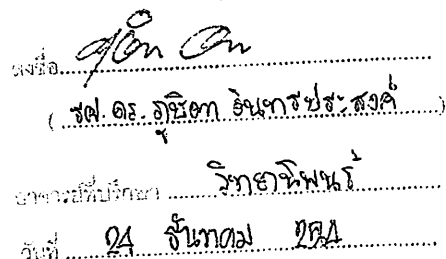 ลงชื่อ
( รศ. ดร. ภูษิตา อินทรประสงค์ )
อาจารย์ที่ปรึกษา วิทยานิพนธ์
วันที่ 24 ธันวาคม